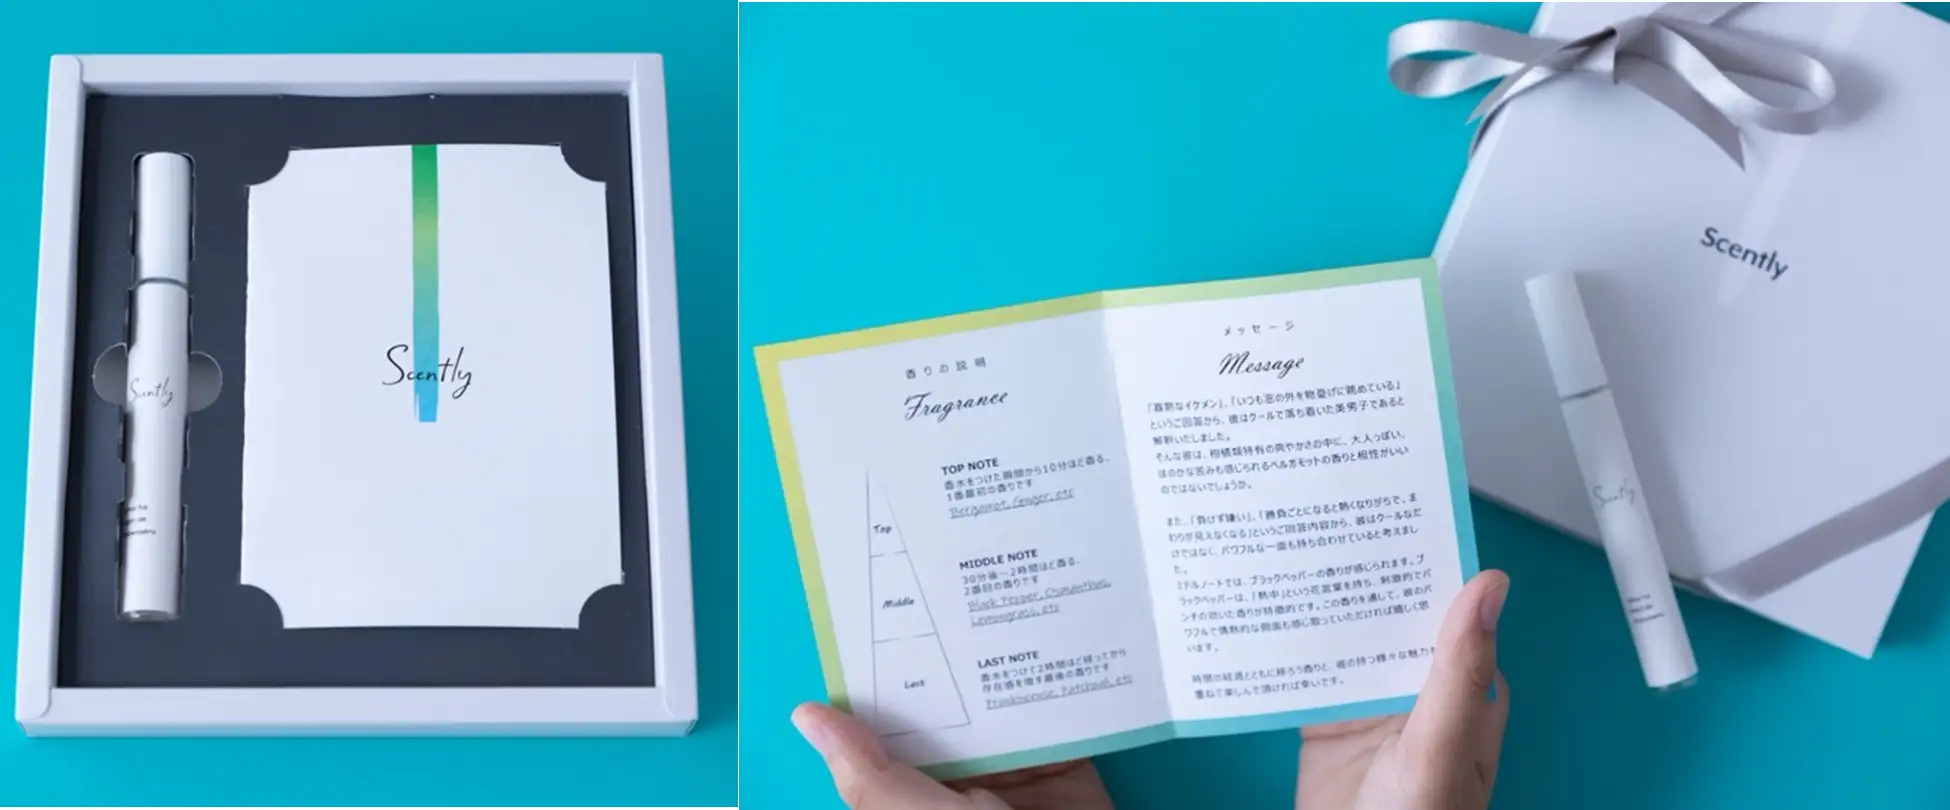 Scently
Scently
香りの説明
Fragrance
TOP NOTE
香水をつけた瞬間から10分ほど香る、
1番最初の香りです
Bergamot, Ginger, etc
MIDDLE NOTE
30分後～2時間ほど香る、
2番目の香りです
Black Pepper, Osmanthus,
Lemongrass, etc
LAST NOTE
香水をつけて2時間ほど経ってから
存在感を増す最後の香りです
Frankincense, Patchouli, etc
Top
Middle
Last
メッセージ
Message
「寡黙なイケメン」、「いつも窓の外を物憂げに眺めている」
というご回答から、彼はクールで落ち着いた美男子であると
解釈いたしました。
そんな彼は、柑橘類特有の爽やかさの中に、大人っぽい、
ほのかな苦みも感じられるベルガモットの香りと相性がいい
のではないでしょうか。
また、「負けず嫌い」、「勝負ごとになると熱くなりがちで、ま
わりが見えなくなる」というご回答内容から、彼はクールなだ
けではなく、パワフルな一面も持ち合わせていると考えまし
た。
ミドルノートでは、ブラックペッパーの香りが感じられます。ブ
ラックペッパーは、「熱中」という花言葉を持ち、刺激的でパ
ンチの効いた香りが特徴的です。この香りを通して、彼のパ
ワフルで情熱的な側面も感じ取っていただければ嬉しく思
います。
時間の経過とともに移ろう香りと、彼の持つ様々な魅力を
重ねて楽しんで頂ければ幸いです。
Scently
Scently